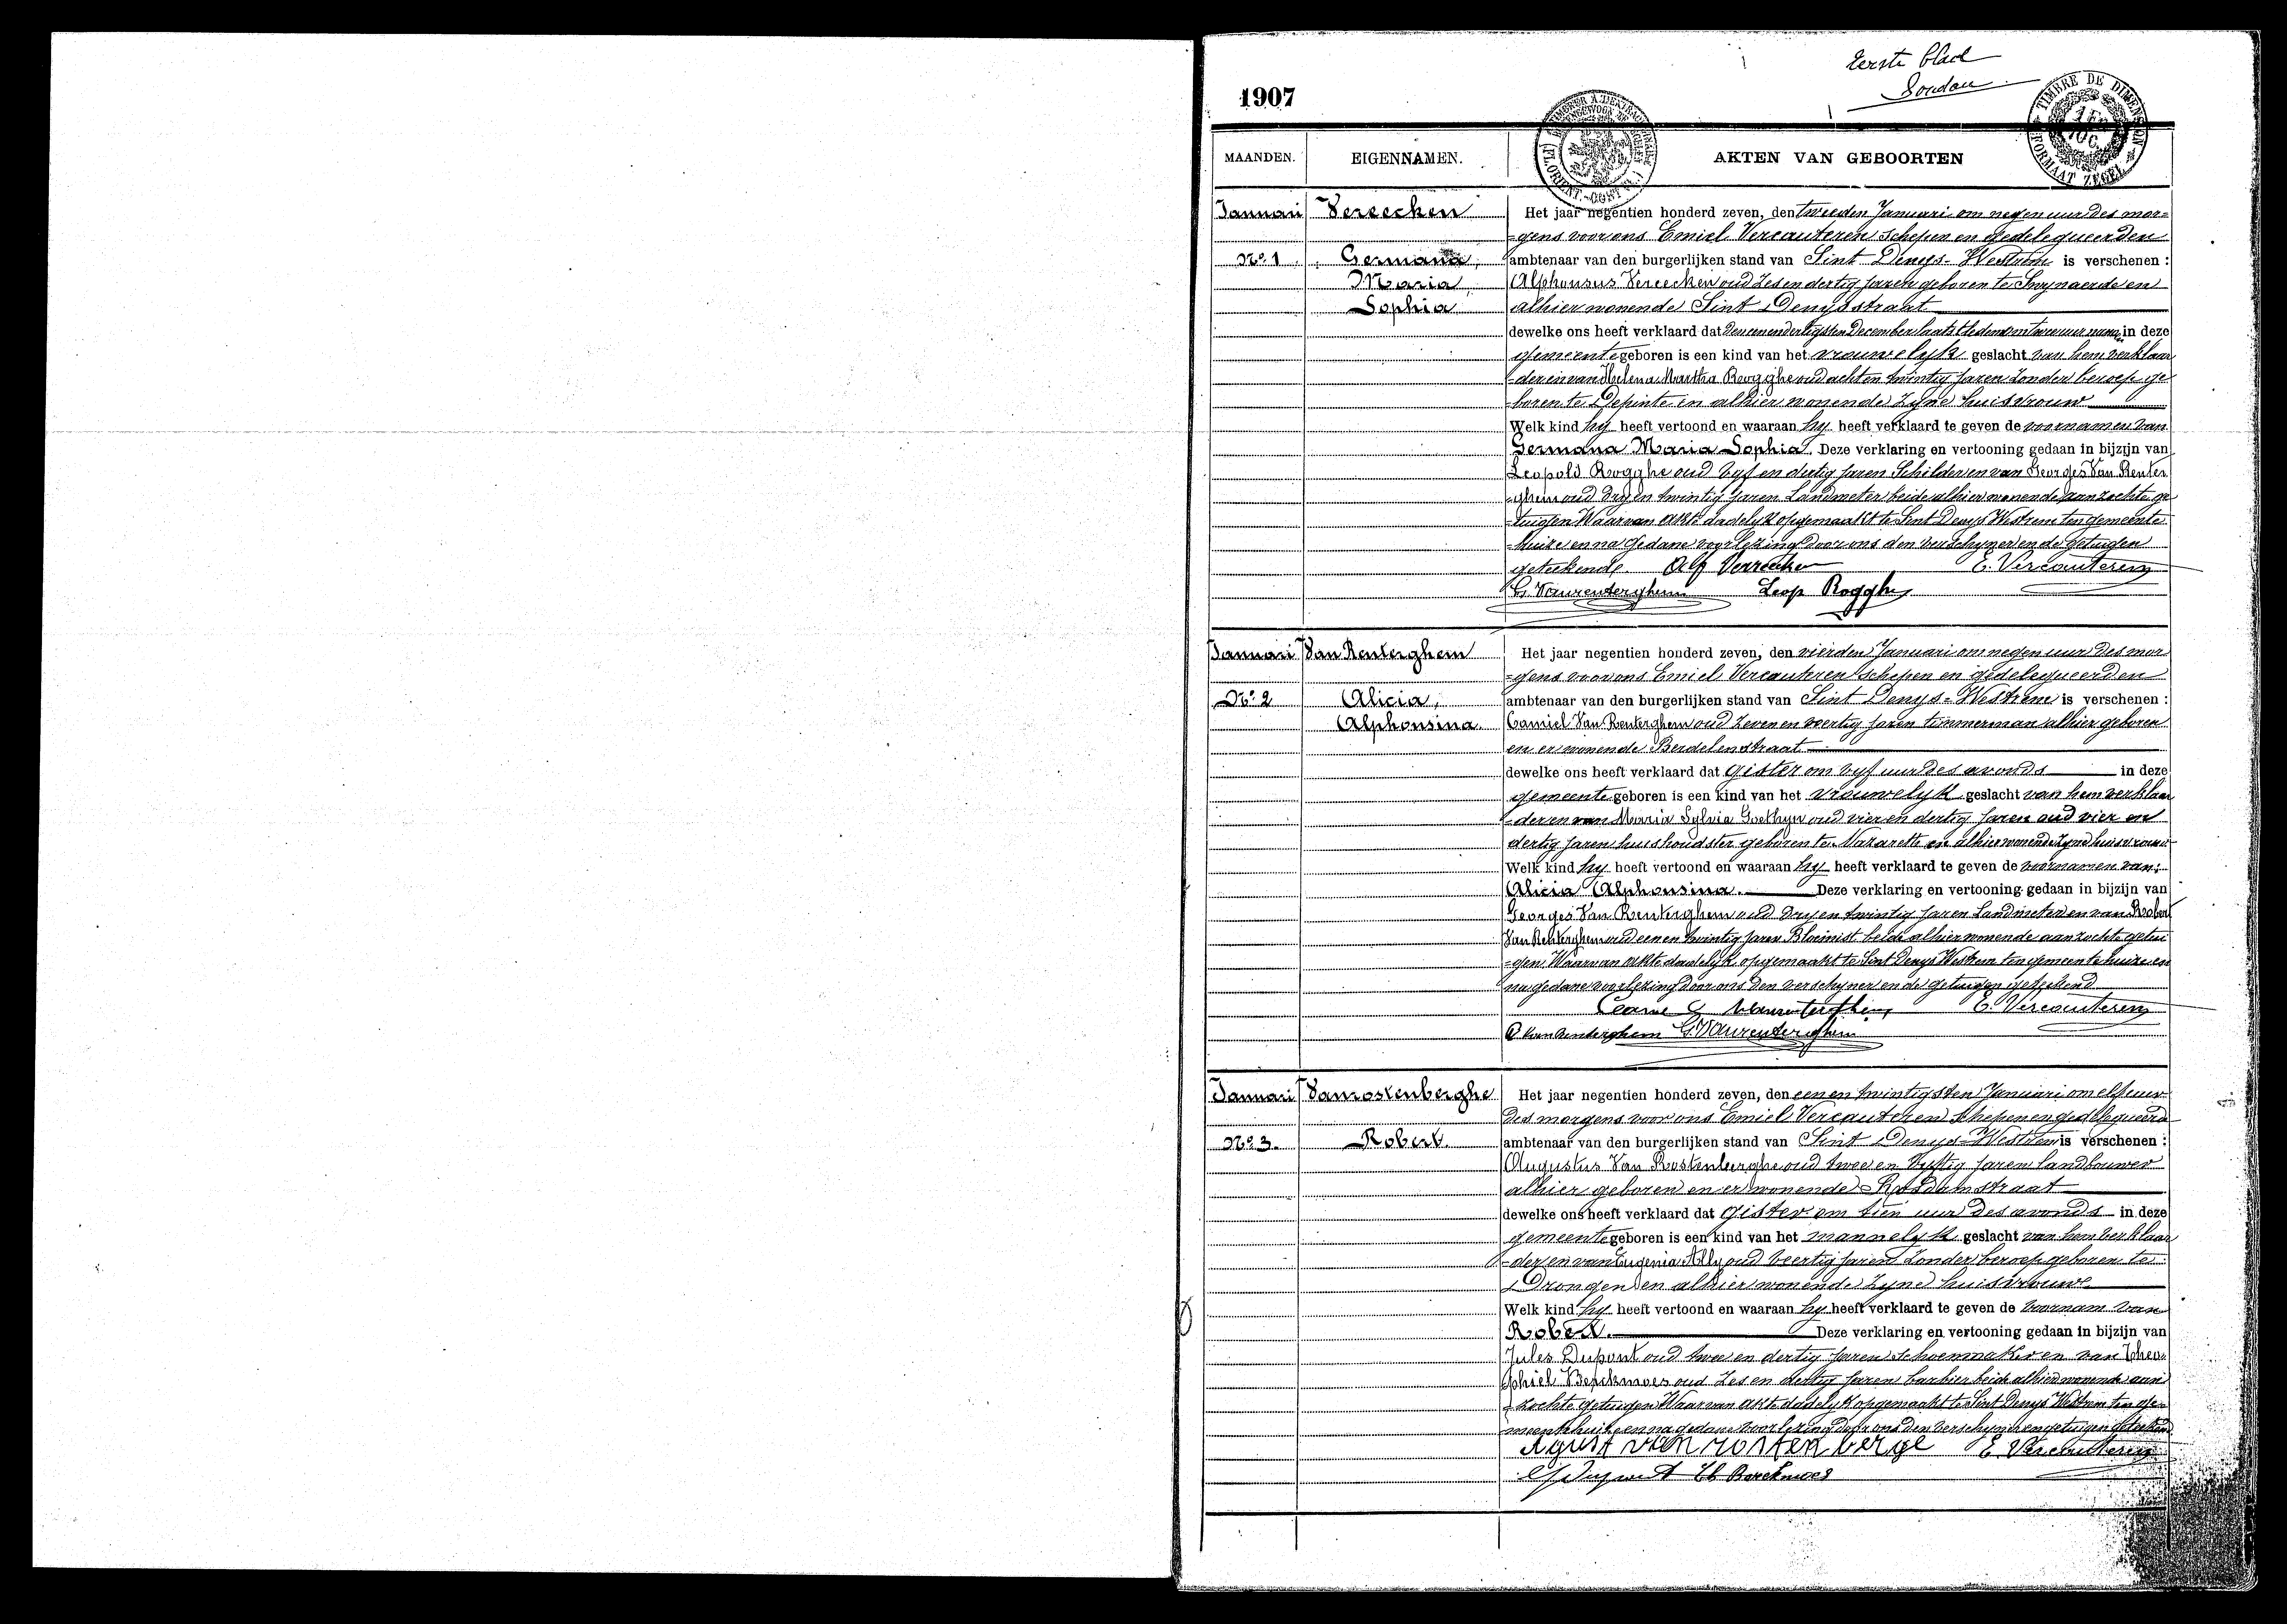 Eerste blad
1907
TIMBRE DE DIMENSION
FORMAAT ZEGEL
MAANDEN.
EIGENNAMEN.
AKTEN VAN GEBOORTEN
Januari
Vereecken
Het jaar negentien honderd zeven, den tweeden Januari om negen uur des mor=
=gens voor ons Emiel Vercauteren schepen en gedelegueerden
No. 1
Germana,
ambtenaar van den burgerlijken stand van Sint Denys-Westrem is verschenen :
Maria,
Alphonsus Vereecken oud Zes en dertig jaren geboren te Swynaerde en
Sophia
alhier wonende Sint Denysstraat
dewelke ons heeft verklaard dat den eenendertigsten December laatstleden om twee uur in deze
gemeente geboren is een kind van het vrouwelyk geslacht van hem verklaar
=der en van Helena Martha Rogghe oud acht en twintig jaren Zonder beroep ge
=boren te Depinte en alhier wonende Zyne huisvrouw
Welk kind hy heeft vertoond en waaraan hy heeft verklaard te geven de voornamen van
Germana Maria Sophia. Deze verklaring en vertooning gedaan in bijzijn van
Leopold Rogghe oud vyf en dertig jaren Schilder en van Georges Van Renter
=ghem oud dry en twintig jaren Landmeter beide alhier wonende aanzochte ge
=tuigen Waarvan akte dadelyk opgemaakt te Sint Denys Westrem ten gemeente
=huize en na gedane voorlezing door ons den verschyner en de getuigen
geteekend. Alf Vereecken E. Vercauteren
G. Vanrenterghem Leop Rogghe
Januari
Van Renterghem
Het jaar negentien honderd zeven, den vierden Januari om negen uur des mor
=gens voor ons Emiel Vercauteren schepen en gedelegueerden
No. 2
Alicia,
ambtenaar van den burgerlijken stand van Sint Denys-Westrem is verschenen :
Alphonsina.
Camiel Van Renterghem oud Zeven en veertig jaren timmerman alhier geboren
en er wonende Berdelenstraat
dewelke ons heeft verklaard dat gister om vyf uur des avonds in deze
gemeente geboren is een kind van het vrouwelyk geslacht van hem verklaar
=der en van Maria Sylvia Goethyn oud vier en dertig jaren oud vier en
dertig jaren huishoudster geboren te Nazareth en alhier wonende Zyne huisvrouw
Welk kind hy heeft vertoond en waaraan hy heeft verklaard te geven de voornamen van:
Alicia Alphonsina. Deze verklaring en vertooning gedaan in bijzijn van
Georges Van Renterghem oud dry en twintig jaren Landmeter en van Robert
Van Renterghem oud een en twintig jaren Bloemist beide alhier wonende aanzochte getui
=gen. Waarvan akte dadelyk opgemaakt te Sint Denys Westrem ten gemeentehuize en
na gedane voorlezing door ons den verschyner en de getuigen geteekend
E. Vercauteren
R. Van Renterghem G. Vanrenterghem
Januari
Vanrostenberghe
Het jaar negentien honderd zeven, den eenen twintigsten Januari om elf uur
des morgens voor ons Emiel Vercauteren schepen en gedelegueerd
No. 3.
Robert.
ambtenaar van den burgerlijken stand van Sint Denys-Westrem is verschenen :
Augustus Van Rostenberghe oud twee en vyftig jaren Landbouwer
alhier geboren en er wonende Rosdamstraat
dewelke ons heeft verklaard dat gister om tien uur des avonds in deze
gemeente geboren is een kind van het mannelyk geslacht van hem verklaar
=der en van Eugenia Ally oud veertig jaren Zonder beroep geboren te
Drongen en alhier wonende Zyne huisvrouwe
Welk kind hy heeft vertoond en waaraan hy heeft verklaard te geven de voornam van
Robert. Deze verklaring en vertooning gedaan in bijzijn van
Jules Dupont oud twee en dertig jaren schoenmaker en van Theo
=phiel Berckmoes oud Zes en dertig jaren barbier beide alhier wonende aan
=zochte getuigen Waarvan akte dadelyk opgemaakt te Sint Denys Westrem ten ge
=meentehuize en na gedane voorlezing door ons den verschyner en getuigen geteekend
Agust van rosten berge E Vercauteren
Dupont Th Berckmoes